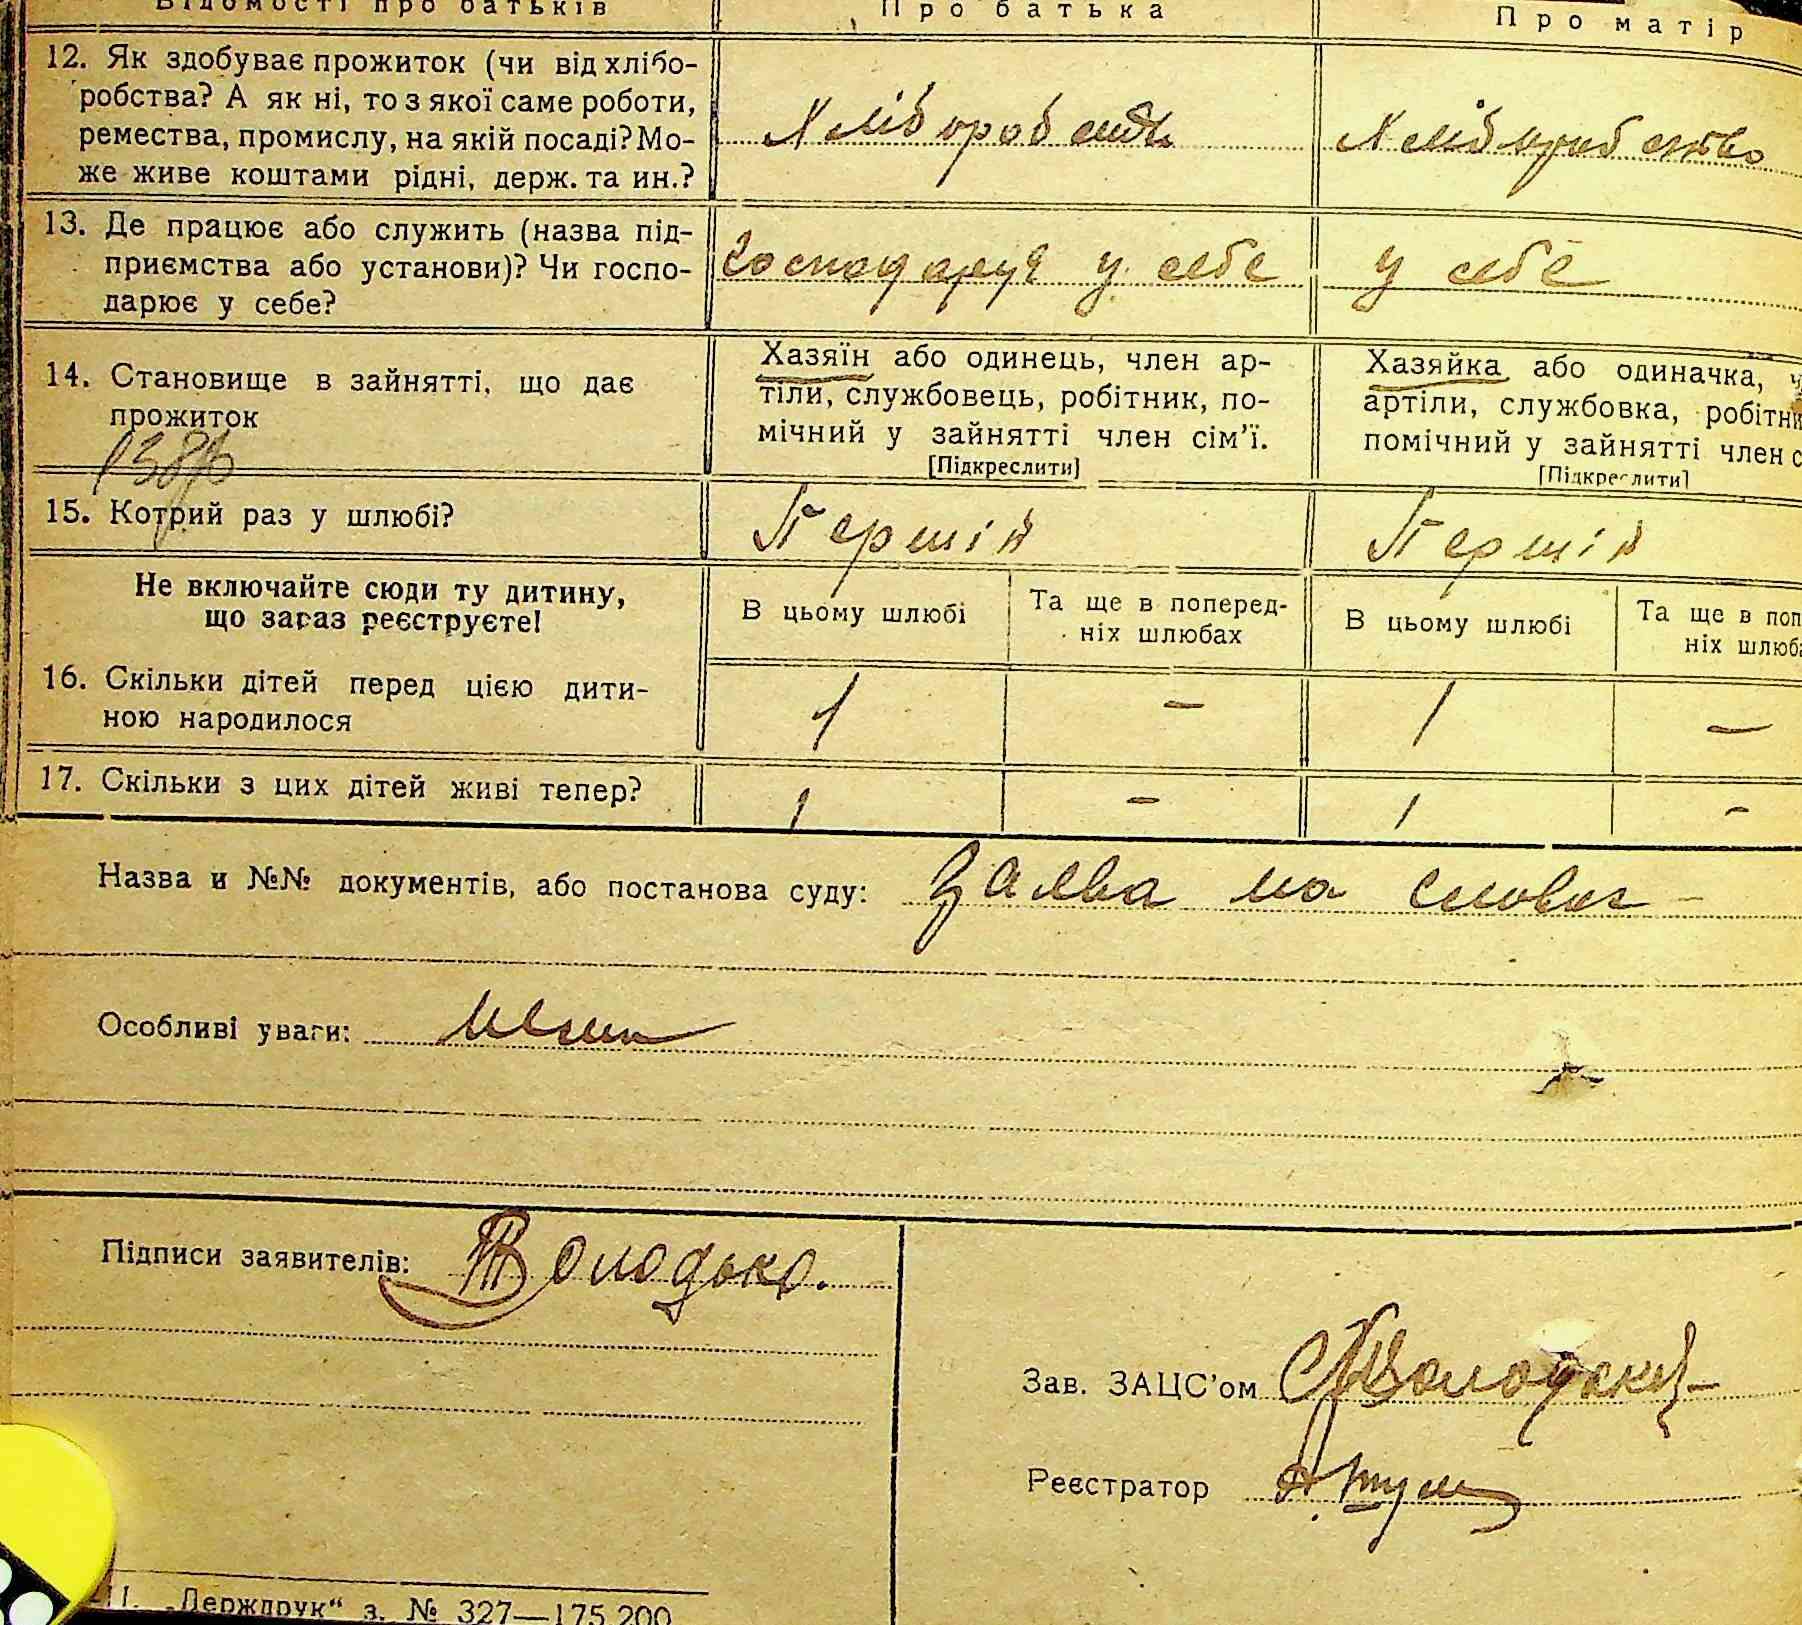 Відомості про батьків Про батька Про матір
12. Як здобуває прожиток (чи від хлібо-
робства? А як ні, то з якої саме роботи,
ремества, промислу, на якій посаді? Мо-
же живе коштами рідні, держ. та ин.?
Хліборобство Хліборобство
13. Де працює або служить (назва під-
приємства або установи)? Чи госпо-
дарює у себе?
Господарує у себе у себе
14. Становище в зайнятті, що дає
прожиток
Хазяїн або одинець, член ар-
тіли, службовець, робітник, по-
мічний у зайнятті член сім'ї.
[Підкреслити]
Хазяйка або одиначка, ч
артіли, службовка, робітни
помічний у зайнятті член с
[Підкреслити]
15. Котрий раз у шлюбі? Перший Перший
Не включайте сюди ту дитину,
що зараз реєструєте!
В цьому шлюбі
Та ще в поперед-
ніх шлюбах
В цьому шлюбі
Та ще в поп
ніх шлюба
16. Скільки дітей перед цією дити-
ною народилося
1 — 1 —
17. Скільки з цих дітей живі тепер? 1 — 1 -
Назва и №№ документів, або постанова суду: Заява на словах
Особливі уваги: нема
Підписи заявителів: Володько.
Зав. ЗАЦС'ом
Реєстратор
„Держдрук“ з. № 327—175.200